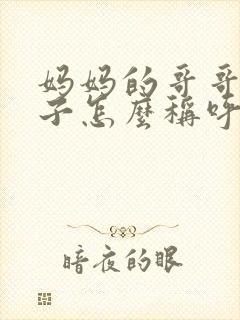 妈妈的哥哥
子怎麼稱呼
暗夜的眼